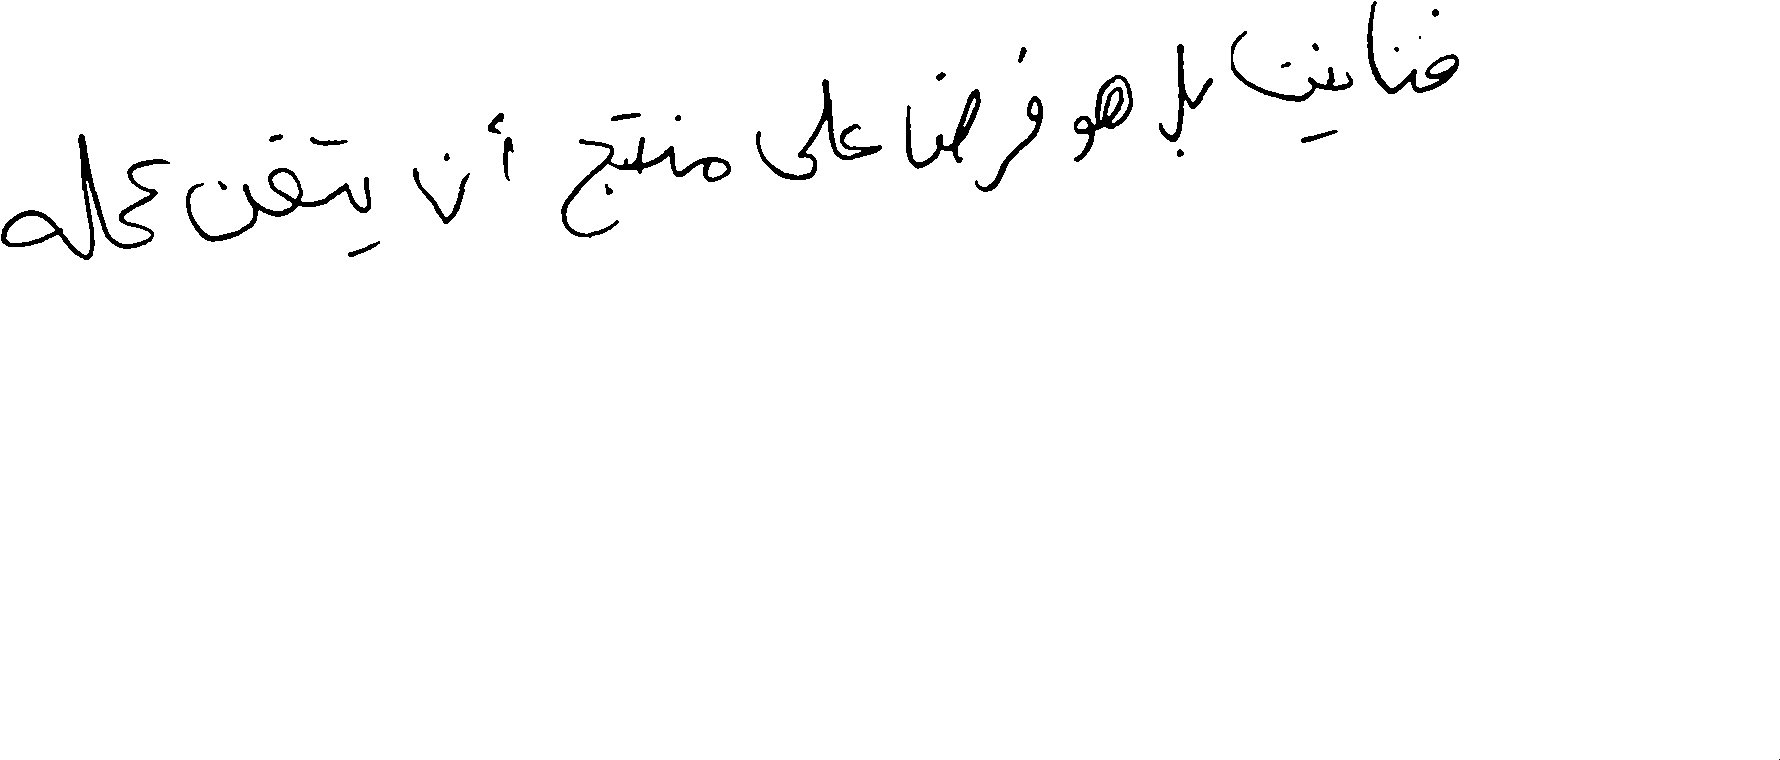 فنانين بل هو فرضا على منتج أن يتقن عمله